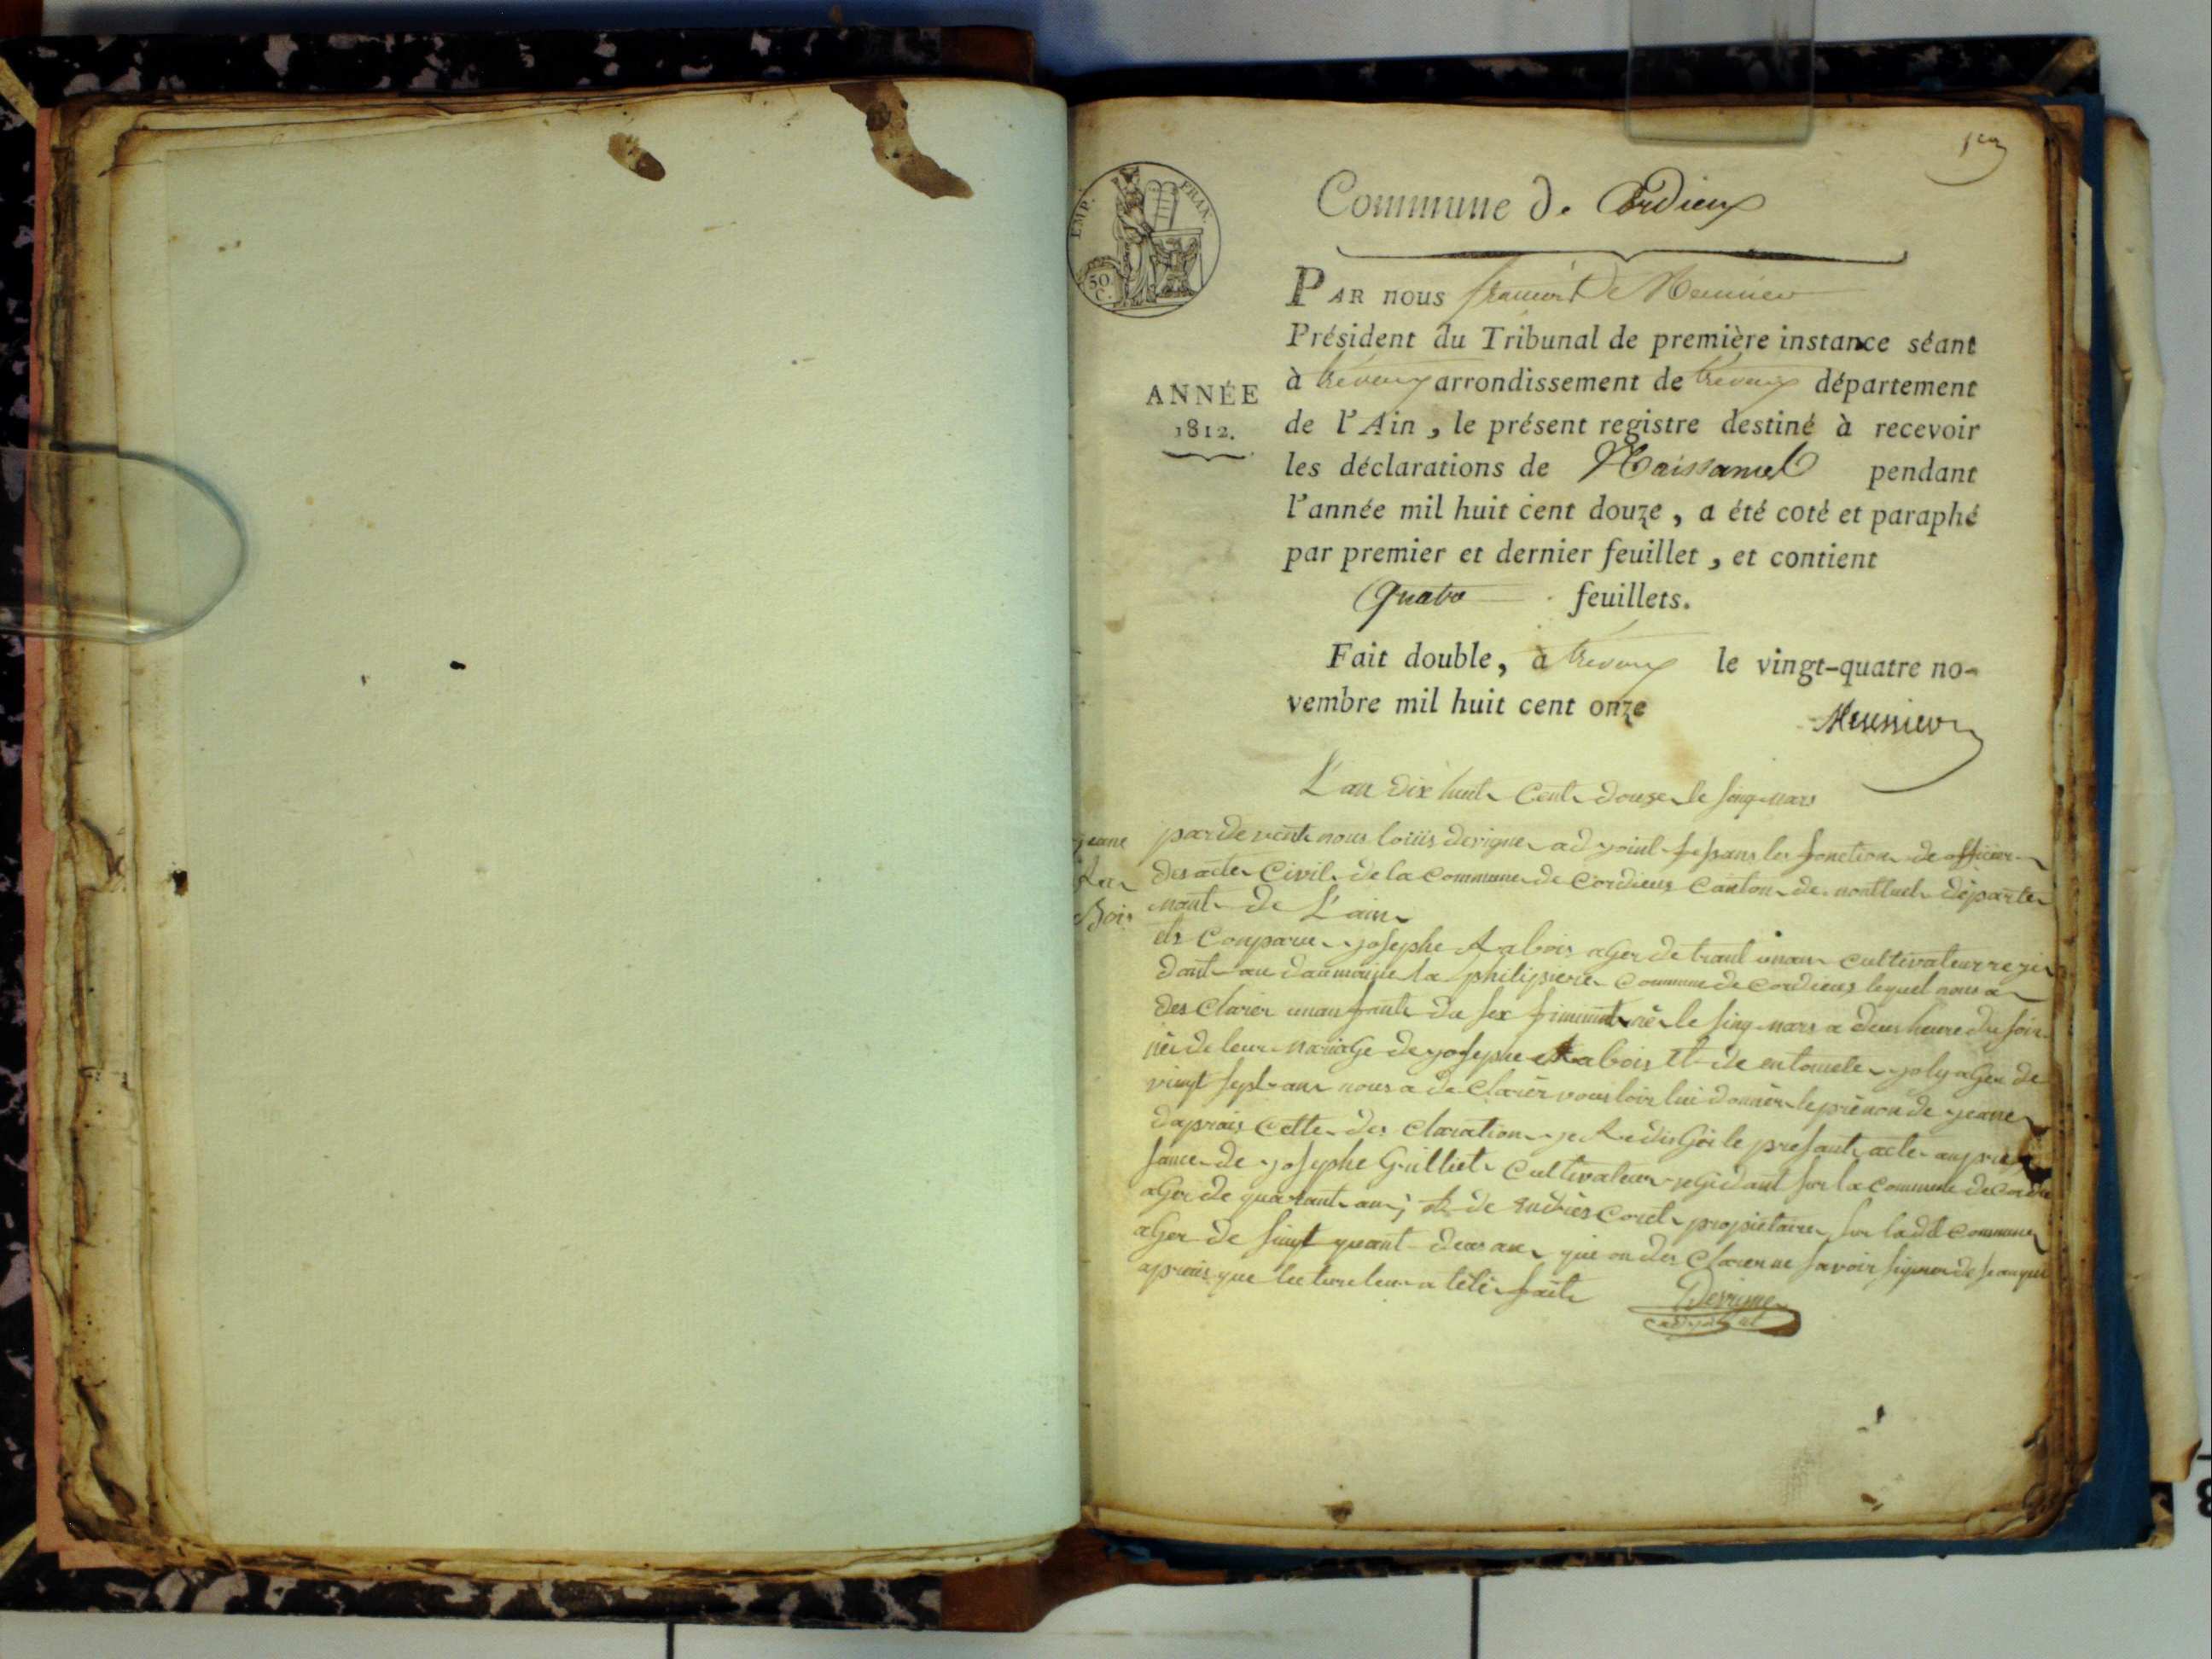 1er
EMP. FRAN.
50 C.
Commune de Cordieux
PAR nous
Président du Tribunal de première instance séant
à trévoux arrondissement de trévoux département
de l'Ain, le présent registre destiné à recevoir
les déclarations de Naissances pendant
l'année mil huit cent douze, a été coté et paraphé
par premier et dernier feuillet, et contient
Quatre feuillets.
Fait double, à trévoux le vingt-quatre no-
vembre mil huit cent onze
Meunier
ANNÉE
1812.
L'an dix huit Cent douze le sinq mars
jeane
Ra
Bois
par de vent nous loüis devigne adjoint fesans les fonction de officier
des acte Civil de la Commune de Cordieux Canton de montluel départe
mant de L'ain
et Conparu josephe Rabois ager de trant un an cultivateur rezi
dant au daumaine la philipiere Commune de Cordieux lequel nous a
des clarer un anfant du sex feminint né le sinq mars a deux heure du soir
née de leur mariage de josephe Rabois et de entoinete joly ager de
vingt sept ans nous a de clarér vouloir lui donnér le prénon de jeane
daprais cette des claration je Redigé le presant acte an pre
sance de josephe Guilliet Cultivateur rezidant sur la commune de Cordie
ager de quarant an; et de andries Coret propietaire sur la dit Commune
ager de sinquant deux ans qui on des clarer ne savoir signer de se anqui
aprais que lecture leur a tété faite
Devigne
adjoint